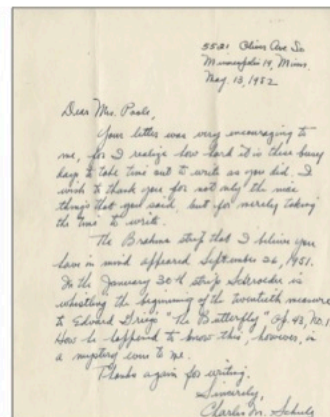 5521 Oliver Ave So.
Minneapolis 19, Minn.
May 13, 1952
Dear Mrs. Poole,
Your letter was very encouraging to
me, for I realize how hard it is these busy
days to take time out to write as you did. I
wish to thank you for not only the nice
things that you said, but for merely taking
the time to write.
The Brahms strip that I believe you
have in mind appeared September 26, 1951.
In the January 30th strip Schroeder is
whistling the beginning of the twentieth measure
to Edvard Grieg's "the Butterfly" Op. 43, No. 1
How he happened to know this, however, is
a mystery even to me.
Thanks again for writing.
Sincerely,
Charles M. Schulz